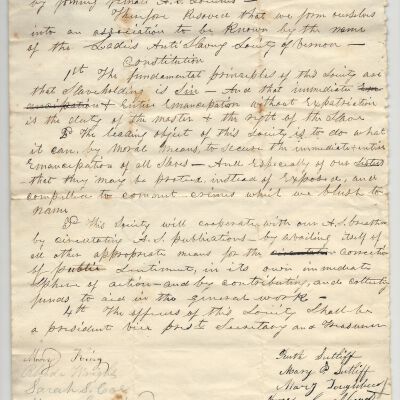 by forming female A.S. Societies —
Therefore Resolved that we form ourselves
into an association to be known by the name
of the Ladies Anti Slavery Society of Vernon —
Constitution
1st The fundamental principles of this Society are
that Slaveholding is Sin — And that immediate
& Entire Emancipation without Expatriation
is the duty of the master & the right of the Slave
2 The leading object of this Society is to do what
it can, by Moral Means, to secure the immediate & entire
Emancipation of all Slaves — And Especially of our Sisters
that they may be protected, instead of Exposed, and
compelled to commit crimes which we blush to
name
3 This Society will cooperate with our A.S. brethren
by circulating A.S. publications — by availing itself of
all other appropriate means for the circulation correction
of public Sentiment, in its own immediate
Sphere of action — and by contributing, and collecting
funds to aid in the general work —
4th The officers of this Society Shall be
a president vice prest Secretary and Treasurer
Mary
Sarah S. Cox
Ruth Sutliff
Mary P Sutliff
Mary